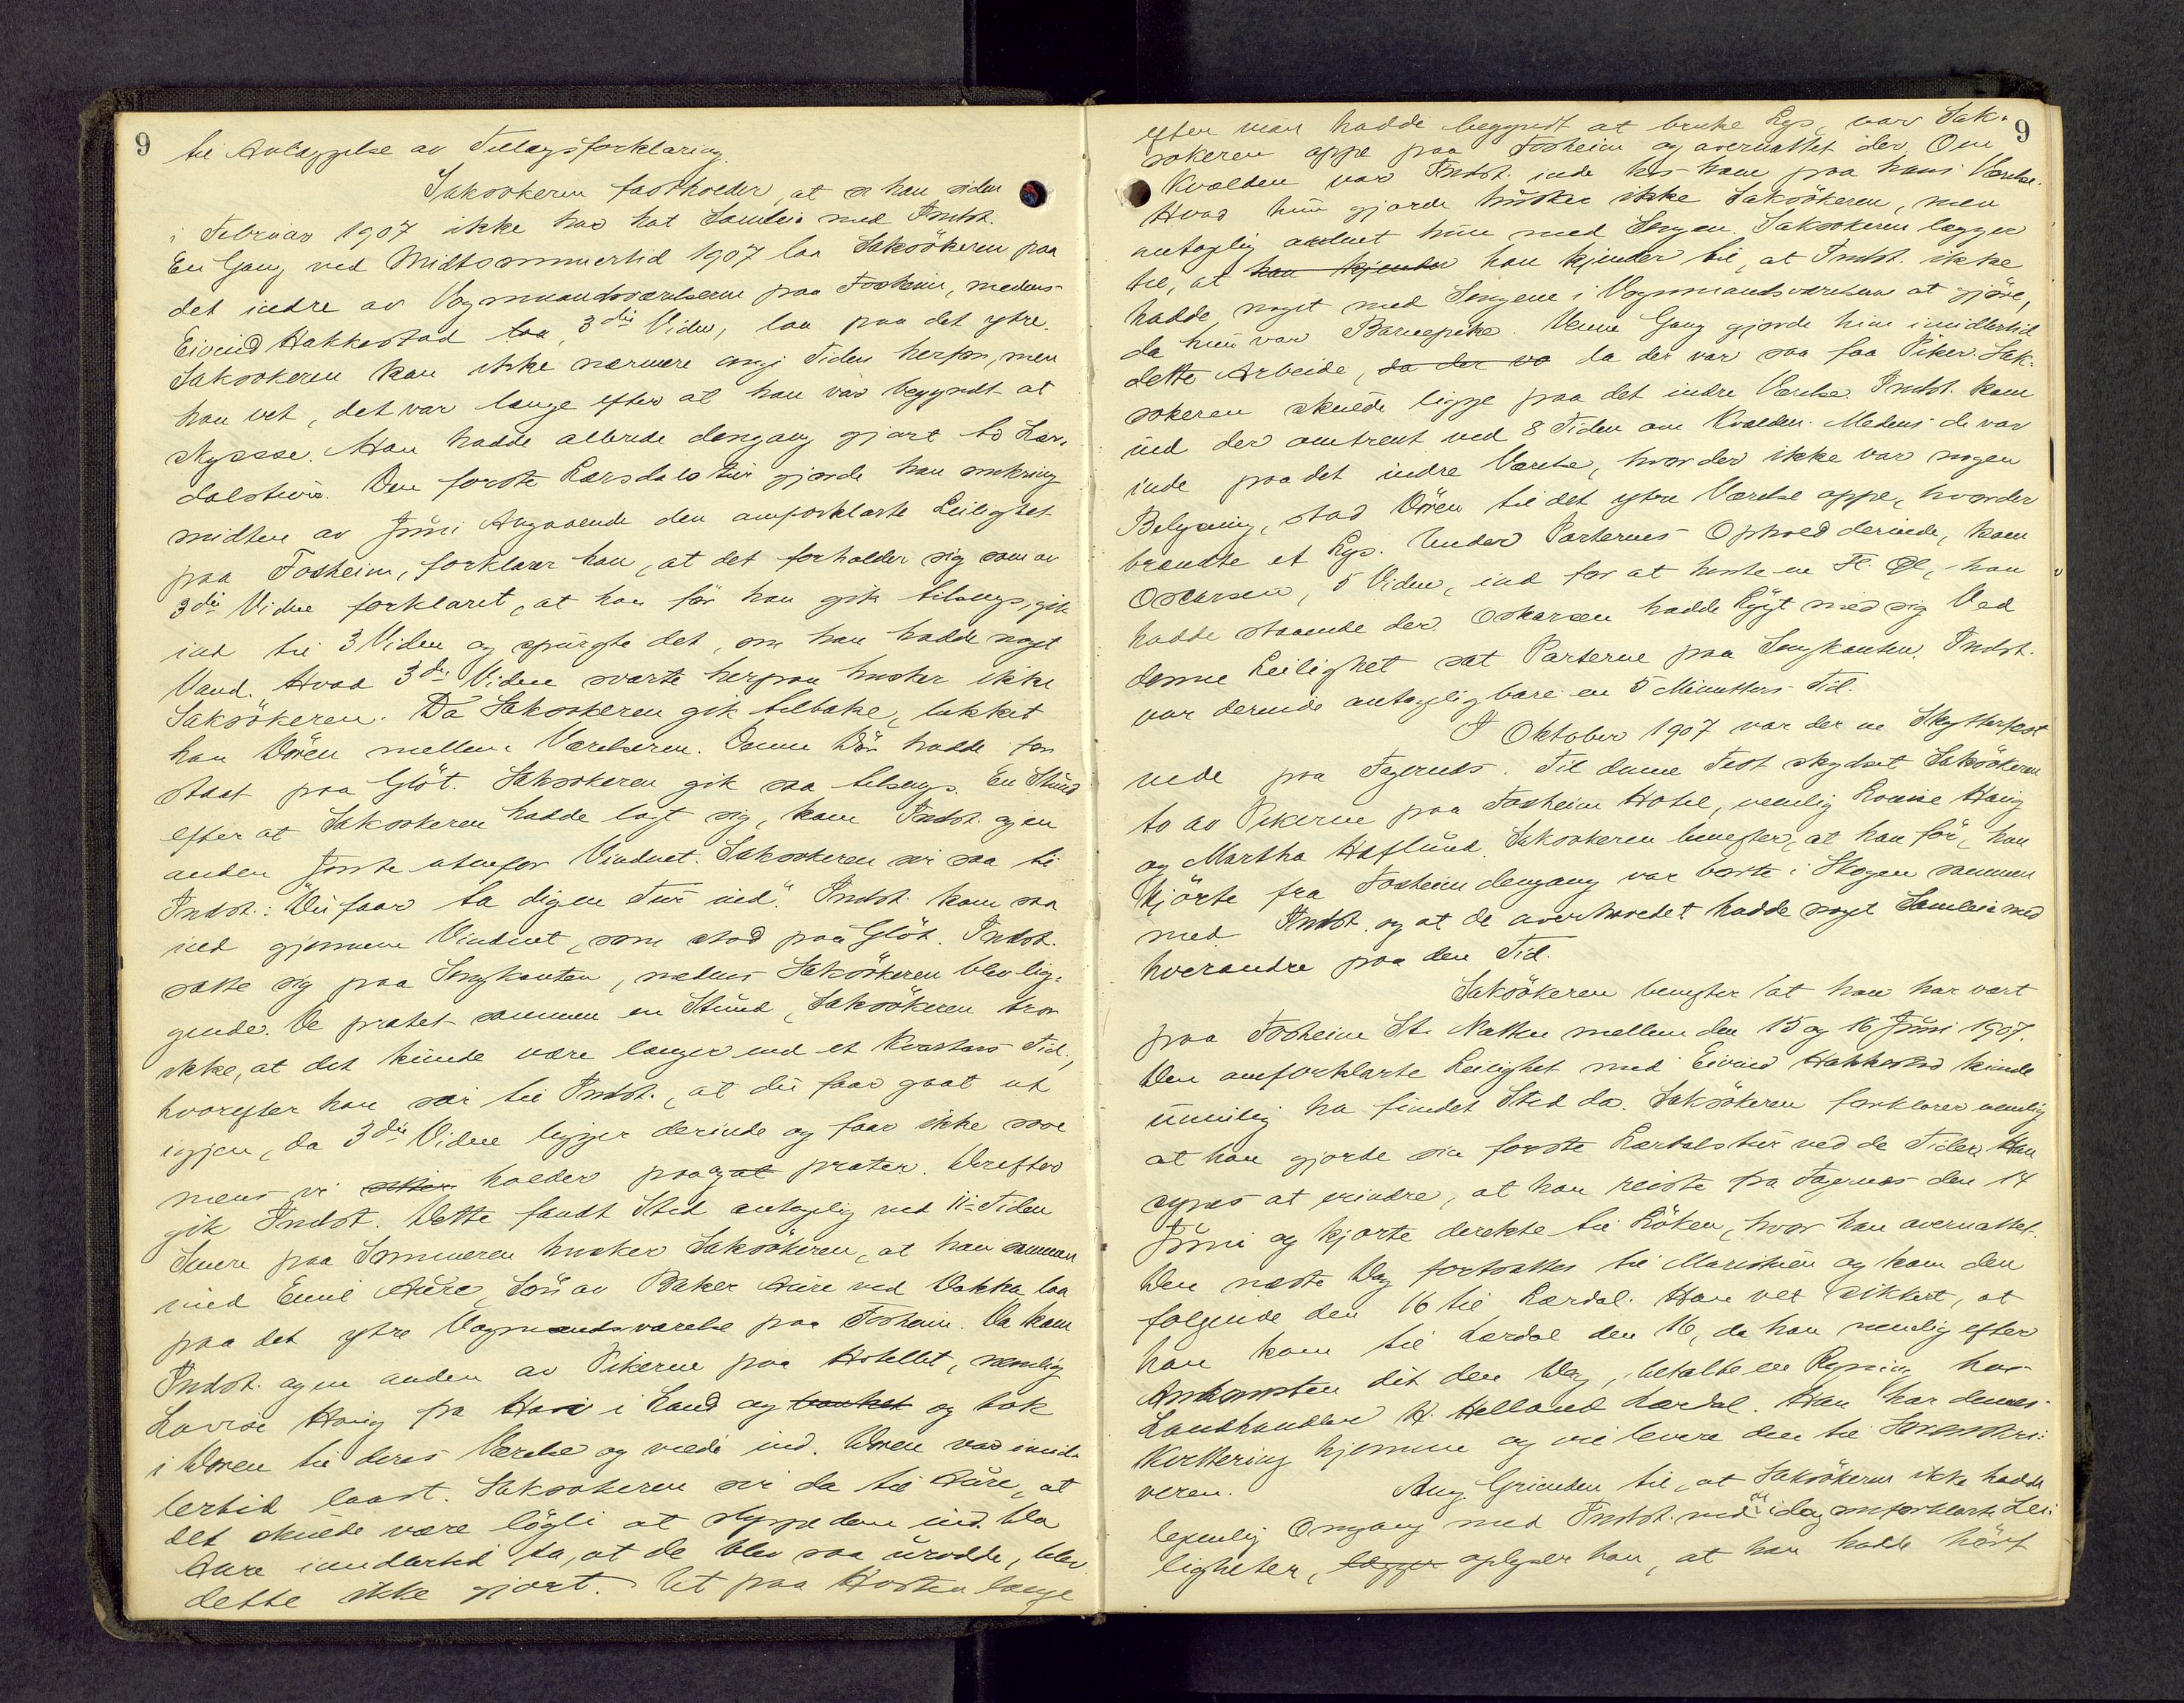 9
til Avlæggelse av Tillægsforklaring.
Saksøkeren fastholder, at han siden
i Februar 1907 ikke har hat Samleie med Indst.
En Gang ved Midtsommertid 1907 laa Saksøkeren paa
det indre av Vogmandsværelserne paa Fosheim, medens
Eivind Hakkestad laa, 3die Vidne, laa paa det ytre.
Saksøkeren kan ikke nærmere angi Tiden herfor, men
han vet, det var længe efter at han var begyndt at
skysse. Han hadde allerede dengang gjort to Lær-
dalsture. Den første Lærdalstur gjorde han omkring
midten av Juni Angaaende den omforklarte Leilighet
paa Fosheim, forklarer han, at det forholder sig som av
3die Vidne forklaret, at han før han gik tilsengs, gik
ind til 3 Vidne og spurgte det, om han hadde noget
Vand. Hvad 3die Vidne svarte herpaa husker ikke
Saksøkeren. Da Saksøkeren gik tilbake, lukket
han Døren mellem Værelserne. Denne Dør hadde før
staat paa Gløt. Saksøkeren gik saa tilsengs. En Stund
efter at Saksøkeren hadde lagt sig, kom Indst. og en
anden Jente utenfor Vinduet. Saksøkeren sier saa til
Indst.: "Du faar ta dig en Tur ind". Indst. kom saa
ind gjennem Vinduet, som stod paa Gløt. Indst.
satte sig paa Sengkanten, medens Saksøkeren blev lig-
gende. De pratet sammen en Stund, Saksøkeren tror
ikke, at det kunde være længer end et Kvarters Tid,
hvorefter han sier til Indst., at du faar gaat ut
igjen, da 3die Vidne ligger derinde og faar ikke sove
mens vi sitter holder paa og at prater. Derefter
gik Indst. Dette fandt Sted antagelig ved 11-Tiden
Senere paa Sommeren husker Saksøkeren, at han sammen
med Emil Aure, Søn av Baker Aure ved Dokka, laa
paa det ytre Vogmandsværelse paa Fosheim. Da kom
Indst. og en anden av Pikerne paa Hotellet, nemlig
Lovise Haug fra i Land og banket og tok
i Døren til deres Værelse og vilde ind. Døren var imid-
lertid laast. Saksøkeren sier da til Aure, at
det skulde være løgli at slippe dem ind. Da
Aure imidlertid sa, at de blev saa urolde, blev
dette ikke gjort. Ut paa Høsten længe
9
efter man hadde begyndt at bruke Lys, var Sak-
søkeren oppe paa Fosheim og overnattet der. Om
Kvælden var Indst. inde hos ham paa hans Værelse.
Hvad hun gjorde husker ikke Saksøkeren, men
antagelig ordnet hun med Sengen. Saksøkeren lægger
til, at han kjender han kjender til, at Indst. ikke
hadde noget med Sengene i Vognmandsværelserne at gjøre,
da hun var Barnepike. Denne Gang gjorde hun imidlertid
dette Arbeide, da der va da der var saa faa Piker. Sak-
søkeren skulde ligge paa det indre Værelse. Indst. kom
ind der omtrent ved 8 Tiden om Kvælden. Medens de var
inde paa det indre Værelse, hvor der ikke var nogen
Belysning, stod Døren til det ytre Værelse oppe, hvor der
brændte et Lys. Under Parternes Ophold derinde, kom
Oscarsen, 5 Vidne, ind for at hente en Fl. Øl, han
hadde staaende der. Oskarsen hadde Lygt med sig Ved
denne Leilighet sat Parterne paa Sengkanten. Indst.
var derinde antagelig bare en 5 Minutters Tid.
I Oktober 1907 var der en Skytterfest
nede paa Fagernes. Til denne Fest skydset Saksøkeren
to av Pikerne paa Fosheim Hotel, nemlig Lovise Haug
og Martha Haflund. Saksøkeren benegter, at han før, han
kjørte fra Fosheim dengang var borte i Skogen sammen
med Indst. og at de overhovedet hadde noget Samleie med
hverandre paa den Tid.
Saksøkeren benegter at han har vært
paa Fosheim St. Natten mellem den 15 og 16 Juni 1907.
Den omforklarte Leilighet med Eivind Hakkestad kunde
umulig ha fundet Sted da. Saksøkeren forklarer nemlig
at han gjorde sin første Lærdalstur ved de Tider. Han
synes at erindre, at han reiste fra Fagernes den 14
Juni og kjørte direkte til Løken, hvor han overnattet.
Den næste Dag fortsattes til Maristuen og kom den
følgende den 16 til Lærdal. Han vet sikkert, at
han kom til Lærdal den 16, da han nemlig efter
Ankomsten dit den Dag, betalte en Regning hos
Landhandler H. Helland Lærdal. Han har dennes
Kvittering hjemme og vil levere den til Sorenskri-
veren.
Ang Grunden til, at Saksøkeren ikke hadde
legemlig Omgang med Indst. ved de idag omforklarte Lei-
ligheter, lægger oplyser han, at han hadde hørt